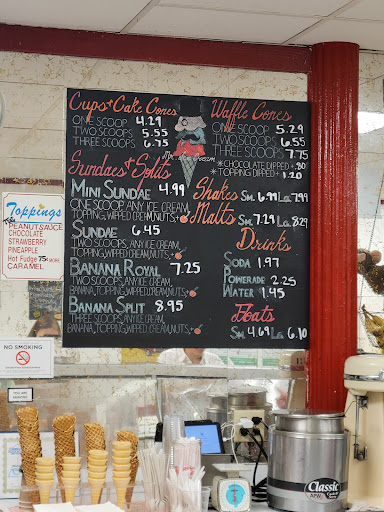 Cups + Cake Cones
ONE SCOOP 4.29
TWO SCOOPS 5.55
THREE SCOOPS 6.75
Waffle Cones
ONE SCOOP 5.29
TWO SCOOPS 6.55
THREE SCOOPS 7.75
*CHOCOLATE DIPPED + .80
*TOPPING DIPPED + 1.20
Ice Cream
Sundaes + Splits
MINI SUNDAE 4.99
ONE SCOOP ANY ICE CREAM,
TOPPING, WIPPED CREAM, NUTS, +
SUNDAE 6.45
TWO SCOOPS, ANY ICE CREAM,
TOPPING, WIPPED CREAM, NUTS, +
BANANA ROYAL 7.25
TWO SCOOPS, ANY ICE CREAM,
BANANA, TOPPING, WIPPED CREAM, NUTS, +
BANANA SPLIT 8.95
THREE SCOOPS, ANY ICE CREAM,
BANANA, TOPPING, WIPPED CREAM, NUTS, +
Shakes Sm. 6.99 La. 7.99
Malts Sm. 7.29 La. 8.29
Drinks
SODA 1.97
POWERADE 2.25
WATER 1.45
Floats
Sm. 4.69 La. 6.10
Toppings
PEANUT SAUCE
CHOCOLATE
STRAWBERRY
PINEAPPLE
Hot Fudge 75¢ MORE
CARAMEL
NO SMOKING
Classic